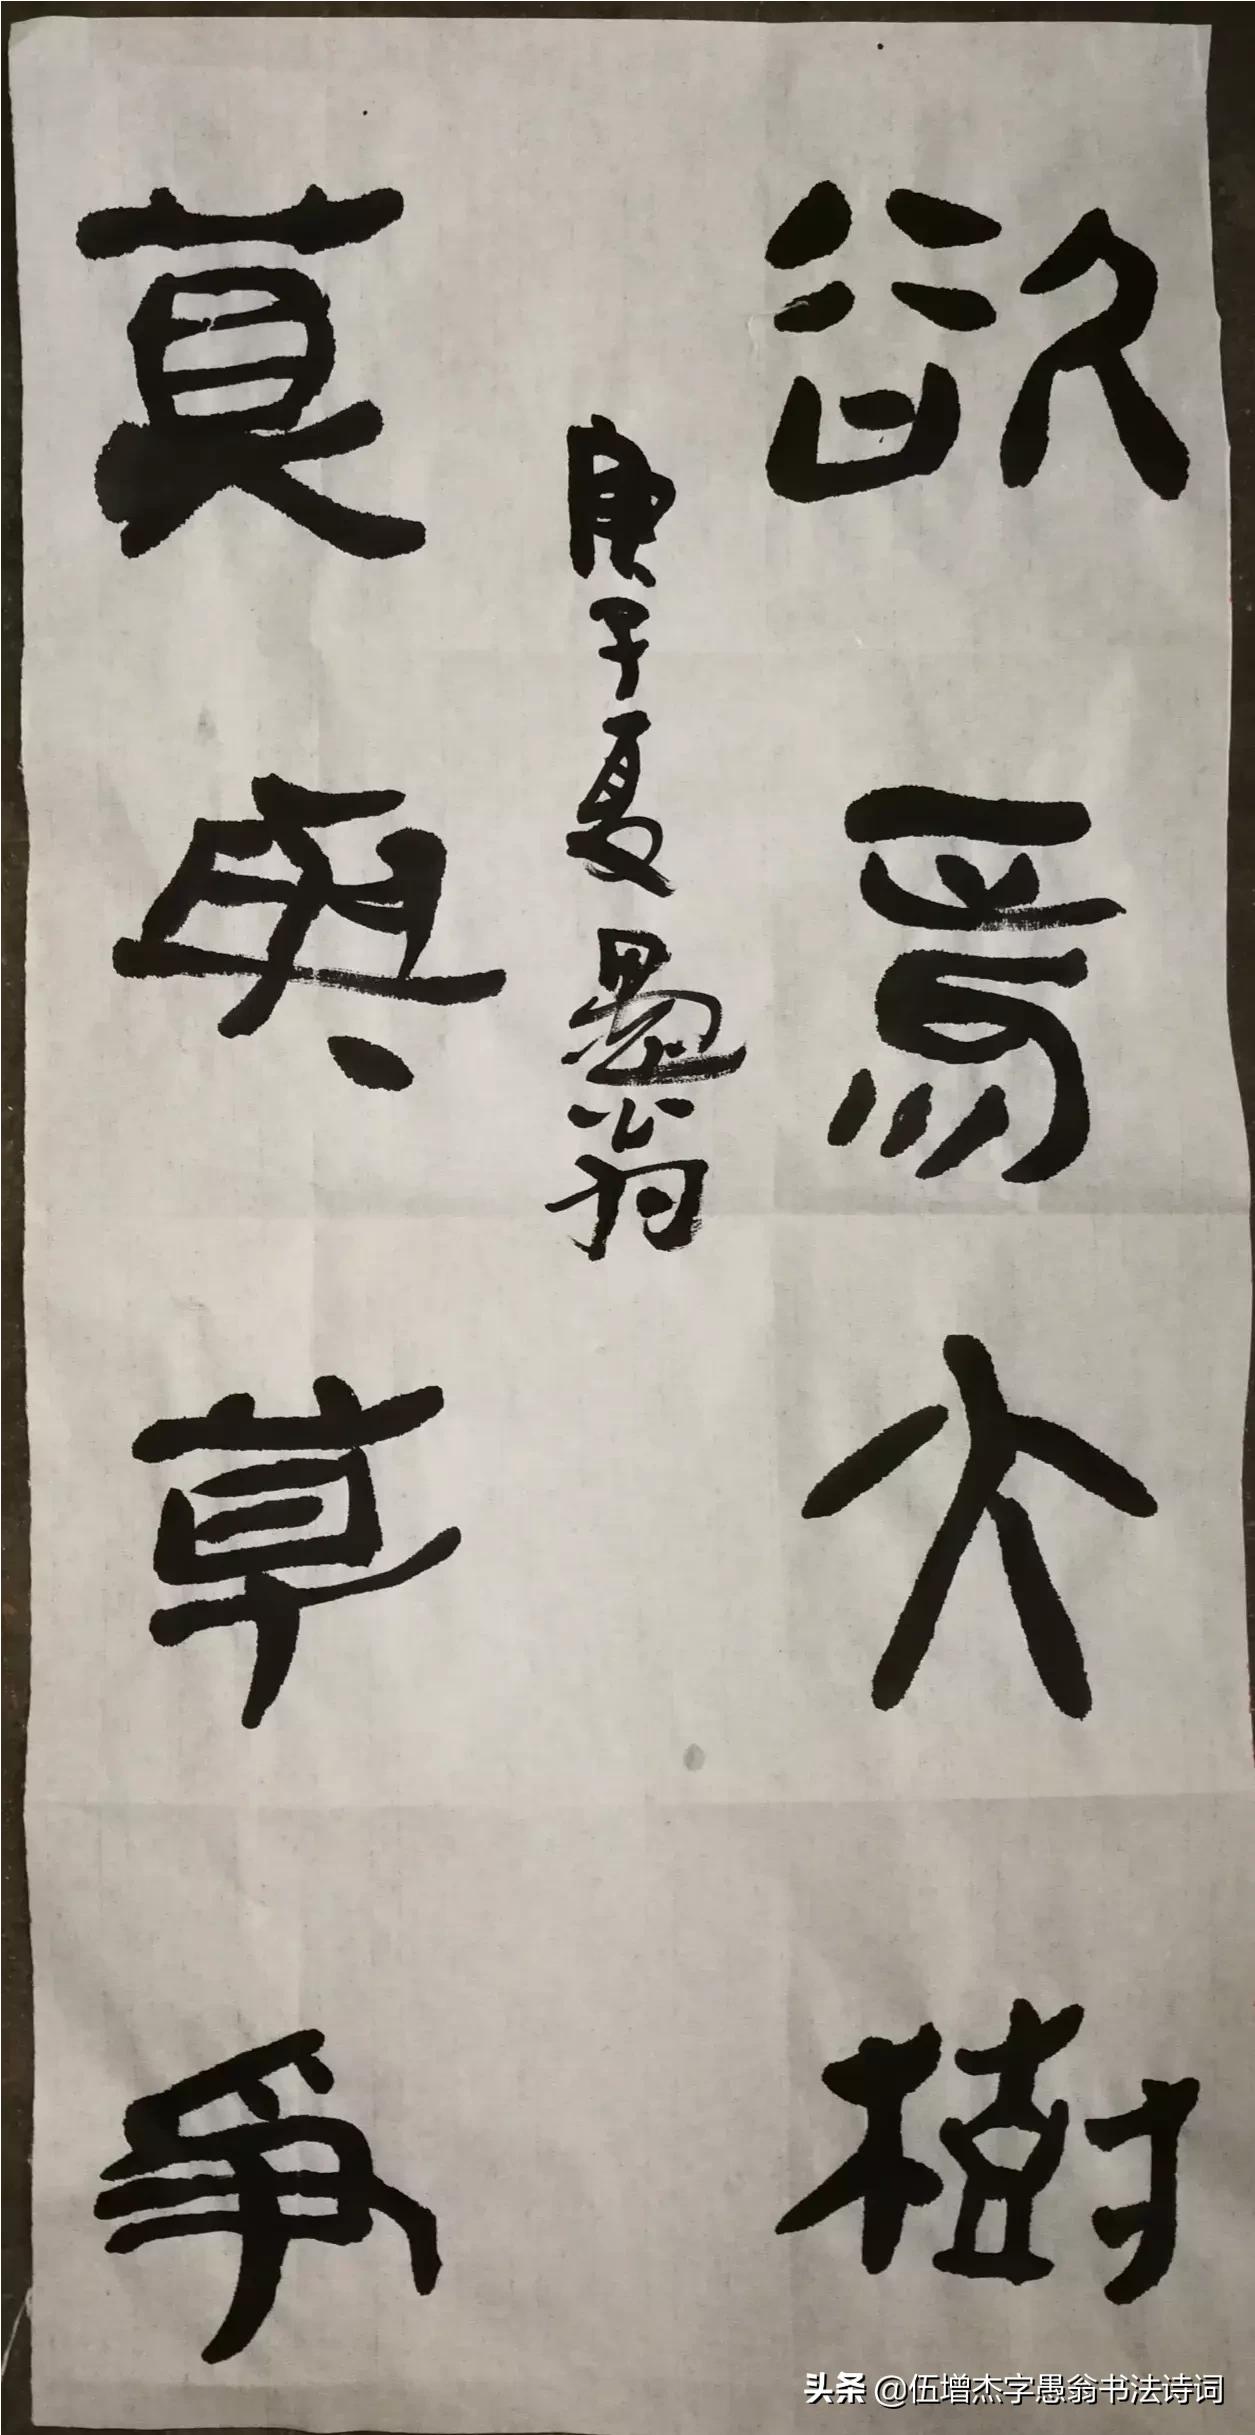 欲為大樹
莫與草爭
庚子夏愚翁
头条 @伍增杰字愚翁书法诗词